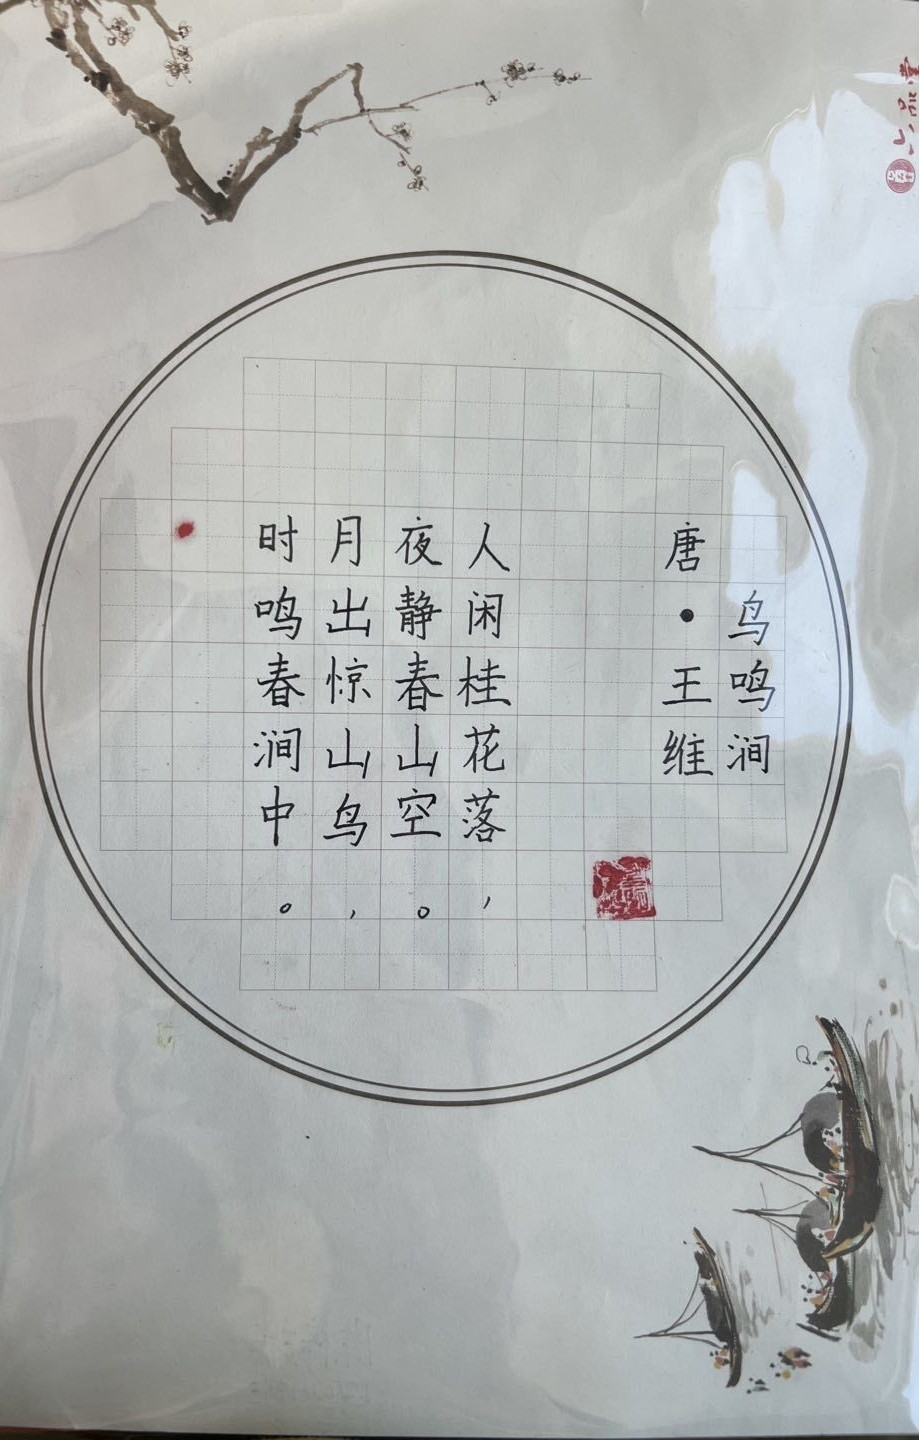 鸟鸣涧
唐·王维
人闲桂花落，
夜静春山空。
月出惊山鸟，
时鸣春涧中。
六品堂